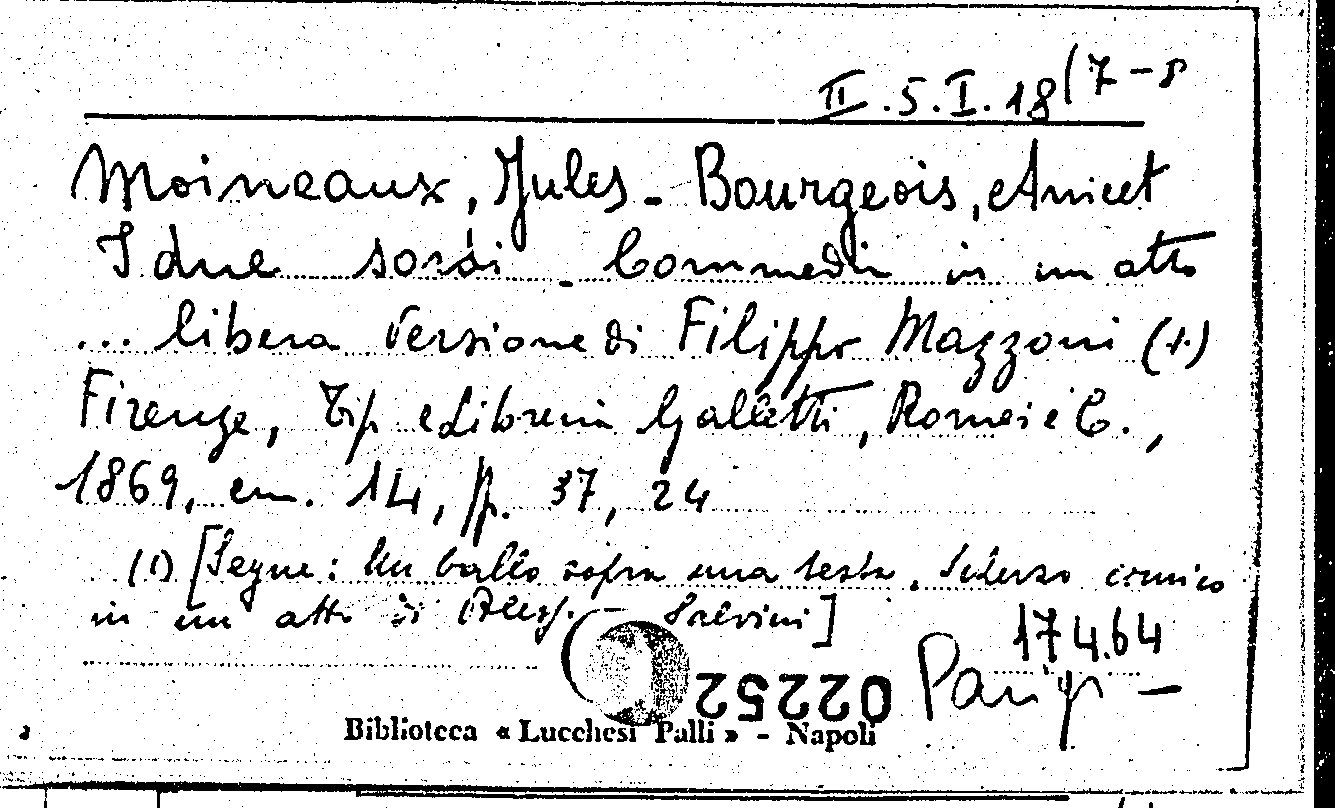 II.5.I.18(7-8
Moineaux, Jules - Bourgeois, Anicet
I due sordi - Commedia in un atto
... libera versione di Filippo Mazzoni (1)
Firenze, Tip. e Libreria Galletti, Romei e C.,
1869, cm. 14, pp. 37, 24
(1) [Segue: Un ballo sopra una testa. Scherzo comico
in un atto di Aless. Salvini]
17.4.64
02252
Biblioteca « Lucchesi Palli » - Napoli